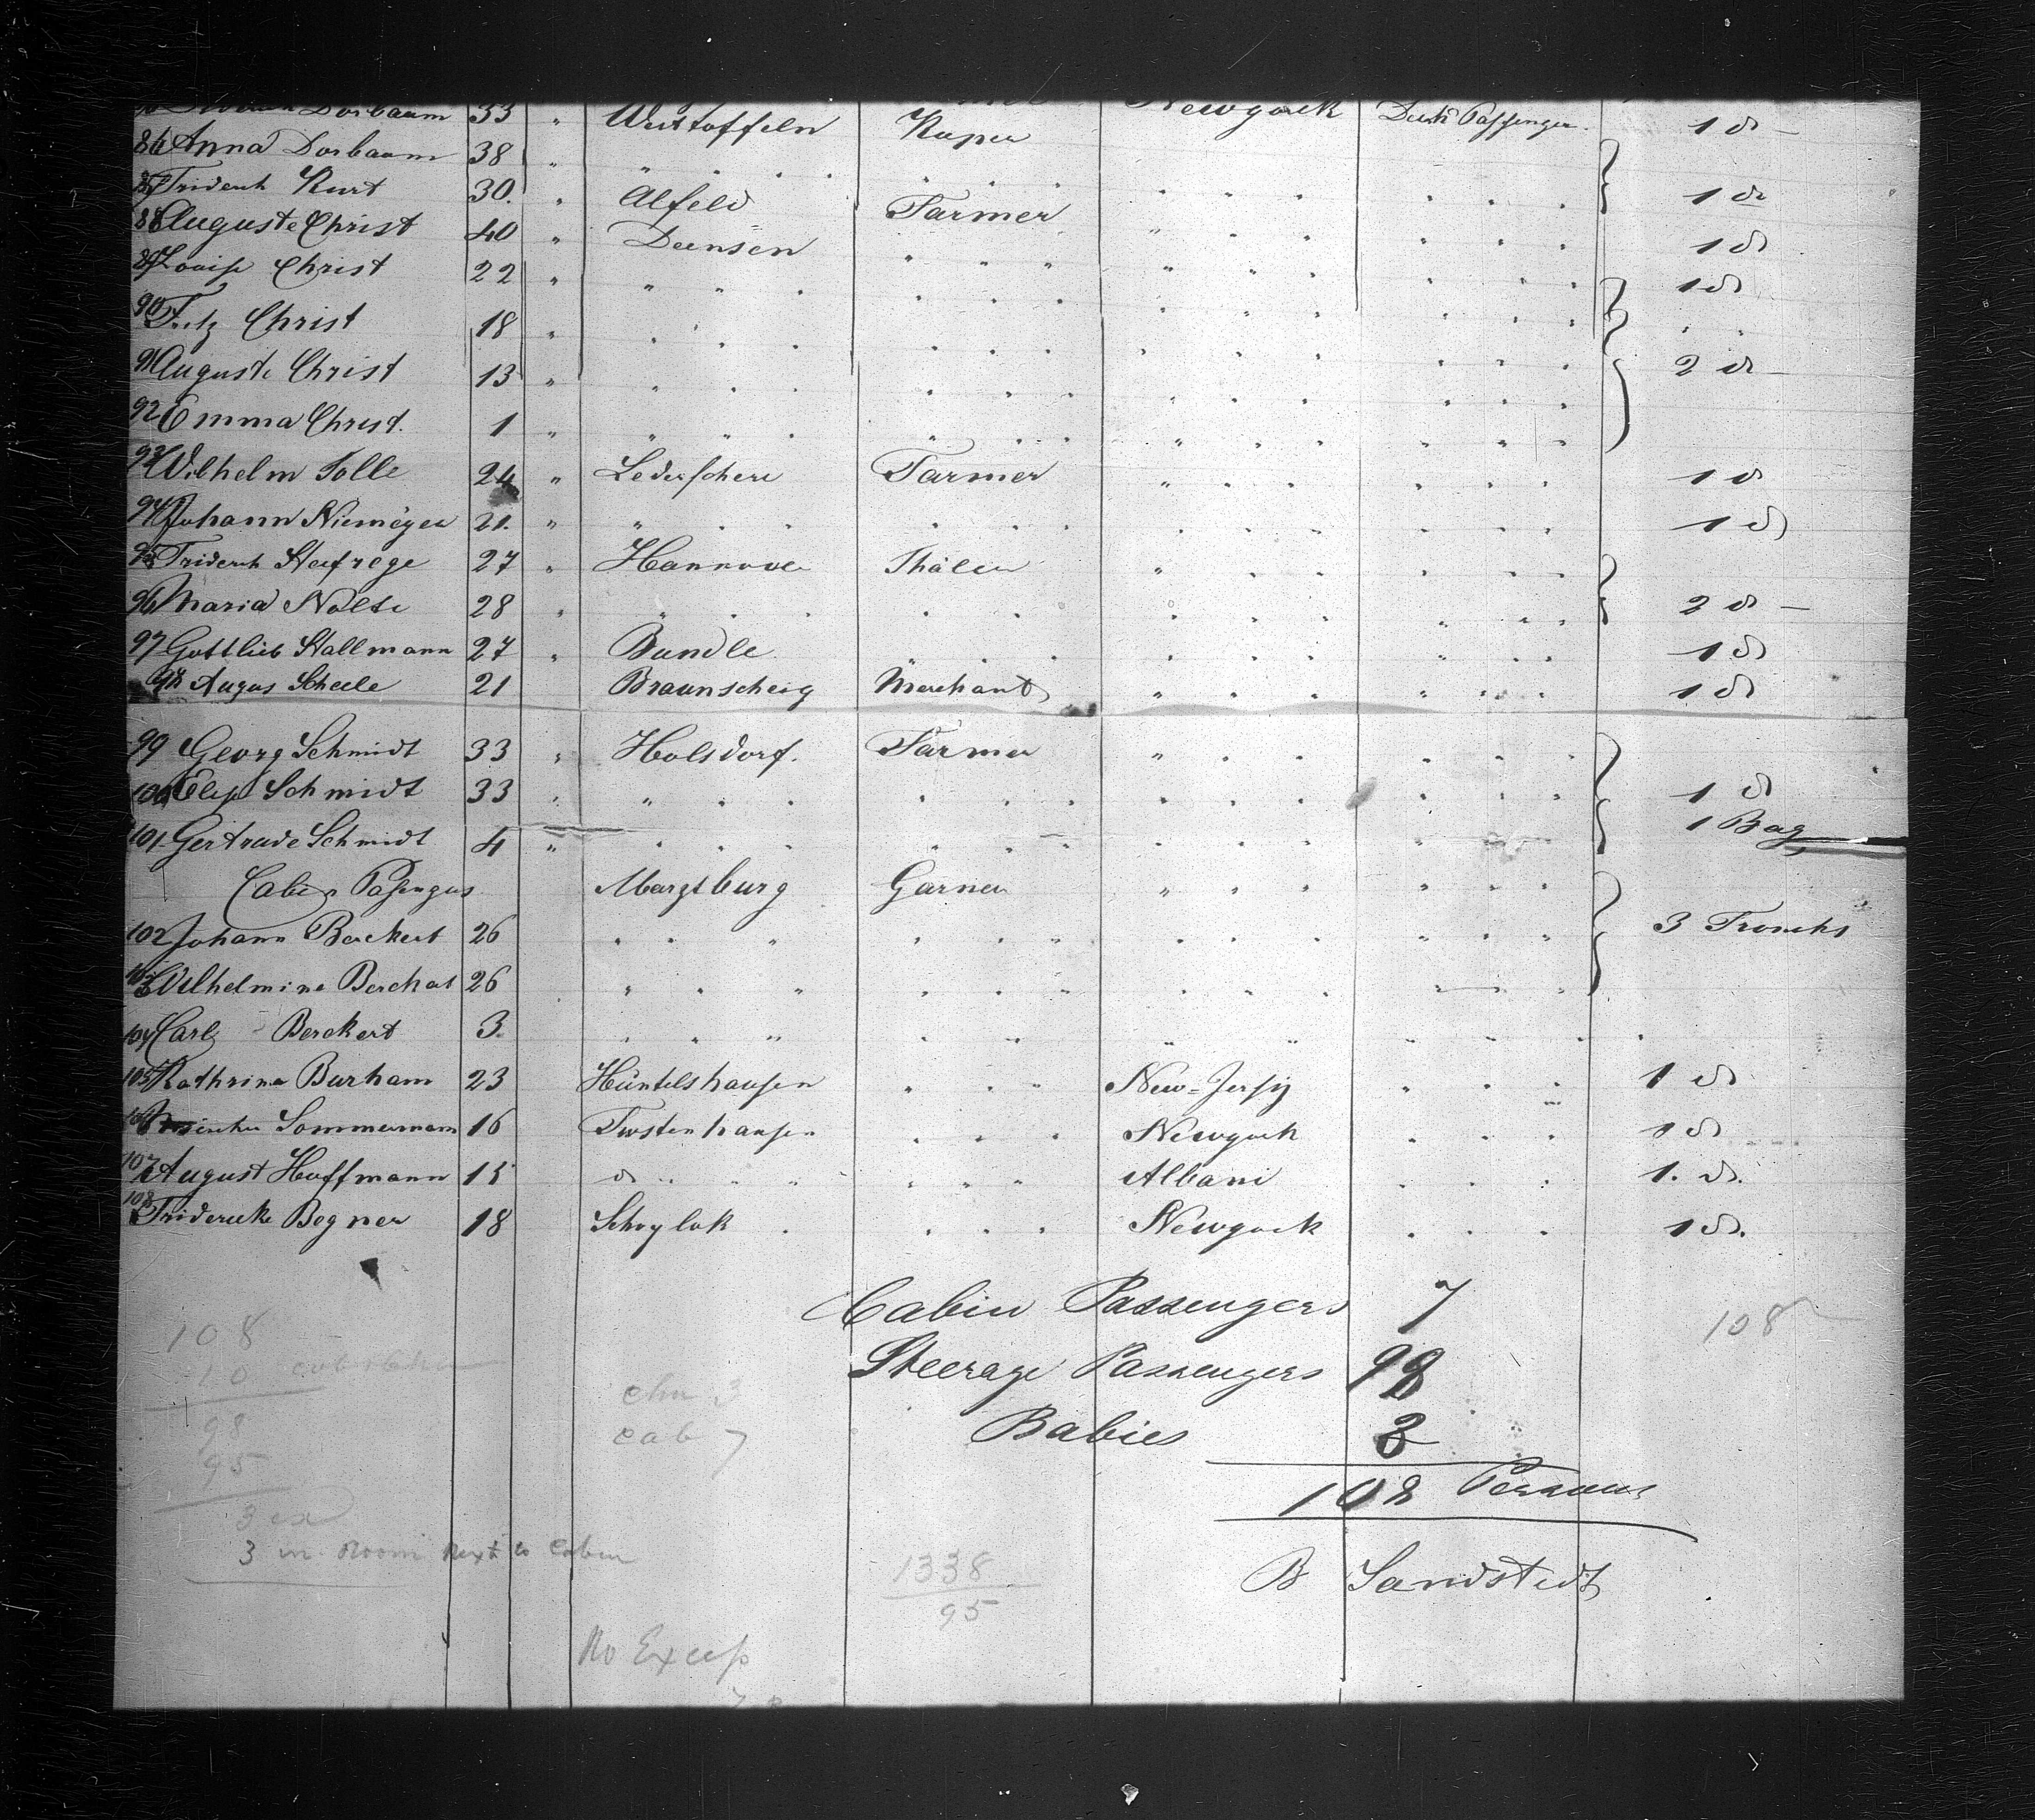 Dorbaum 33 " Westoffeln Newyork Deck Passenger. 1 do -
86 Anna Dorbaum 38 " " " " "
87 Friderich Kurt 30. " Alfeld Farmer " " " 1 do
88 Auguste Christ 40 " Deensen " " " 1 do
89 Louise Christ 22 " " " " 1 do
90 Fritz Christ 18 " " " " " "
91 Auguste Christ 13 " " " " 2 do -
92 Emma Christ. 1 " " " "
93 Wilhelm Tolle 24 " Farmer " " " 1 do
94 Johann Niemeyer 21. " " " " 1 do
95 Friderich 27 " Hannover " " "
96 Maria Nolte 28 " " " " 2 do -
97 Gottlieb Stallmann 27 " Bundle " " " 1 do
98 Augus Scheele 21 Braunscheig Merchant " " " 1 do
99 Georg Schmidt 33 " Holsdorf. Farmer " " "
100 Elise Schmidt 33 " " " " 1 do
101 Gertrude Schmidt 4 " " " " 1 Bag
Cabin Pasengers " " "
102 Johann Berckert 26 " " " " 3 Troncks
103 Wilhelmine Berckert 26 " " " "
104 Carl Berckert 3 " " " "
105 Kathrina Burham 23 Hüntelshausen " " " New-Jersy " " " 1 do
106 Sommermann 16 " " " Newyork " " " 1 do
107 August Hoffmann 15 do " " " Albani " " " 1. do.
108 Fridericke Begner 18 " " " Newyork " " " 1 do.
Cabin Passengers 7
Steerage Passengers 98
Babies 3
108 Persons
B Sandstedt
108
108
10
98
95
3 ex
3 in Room next to Cabin
3
cab 7
1338
95
No Excep